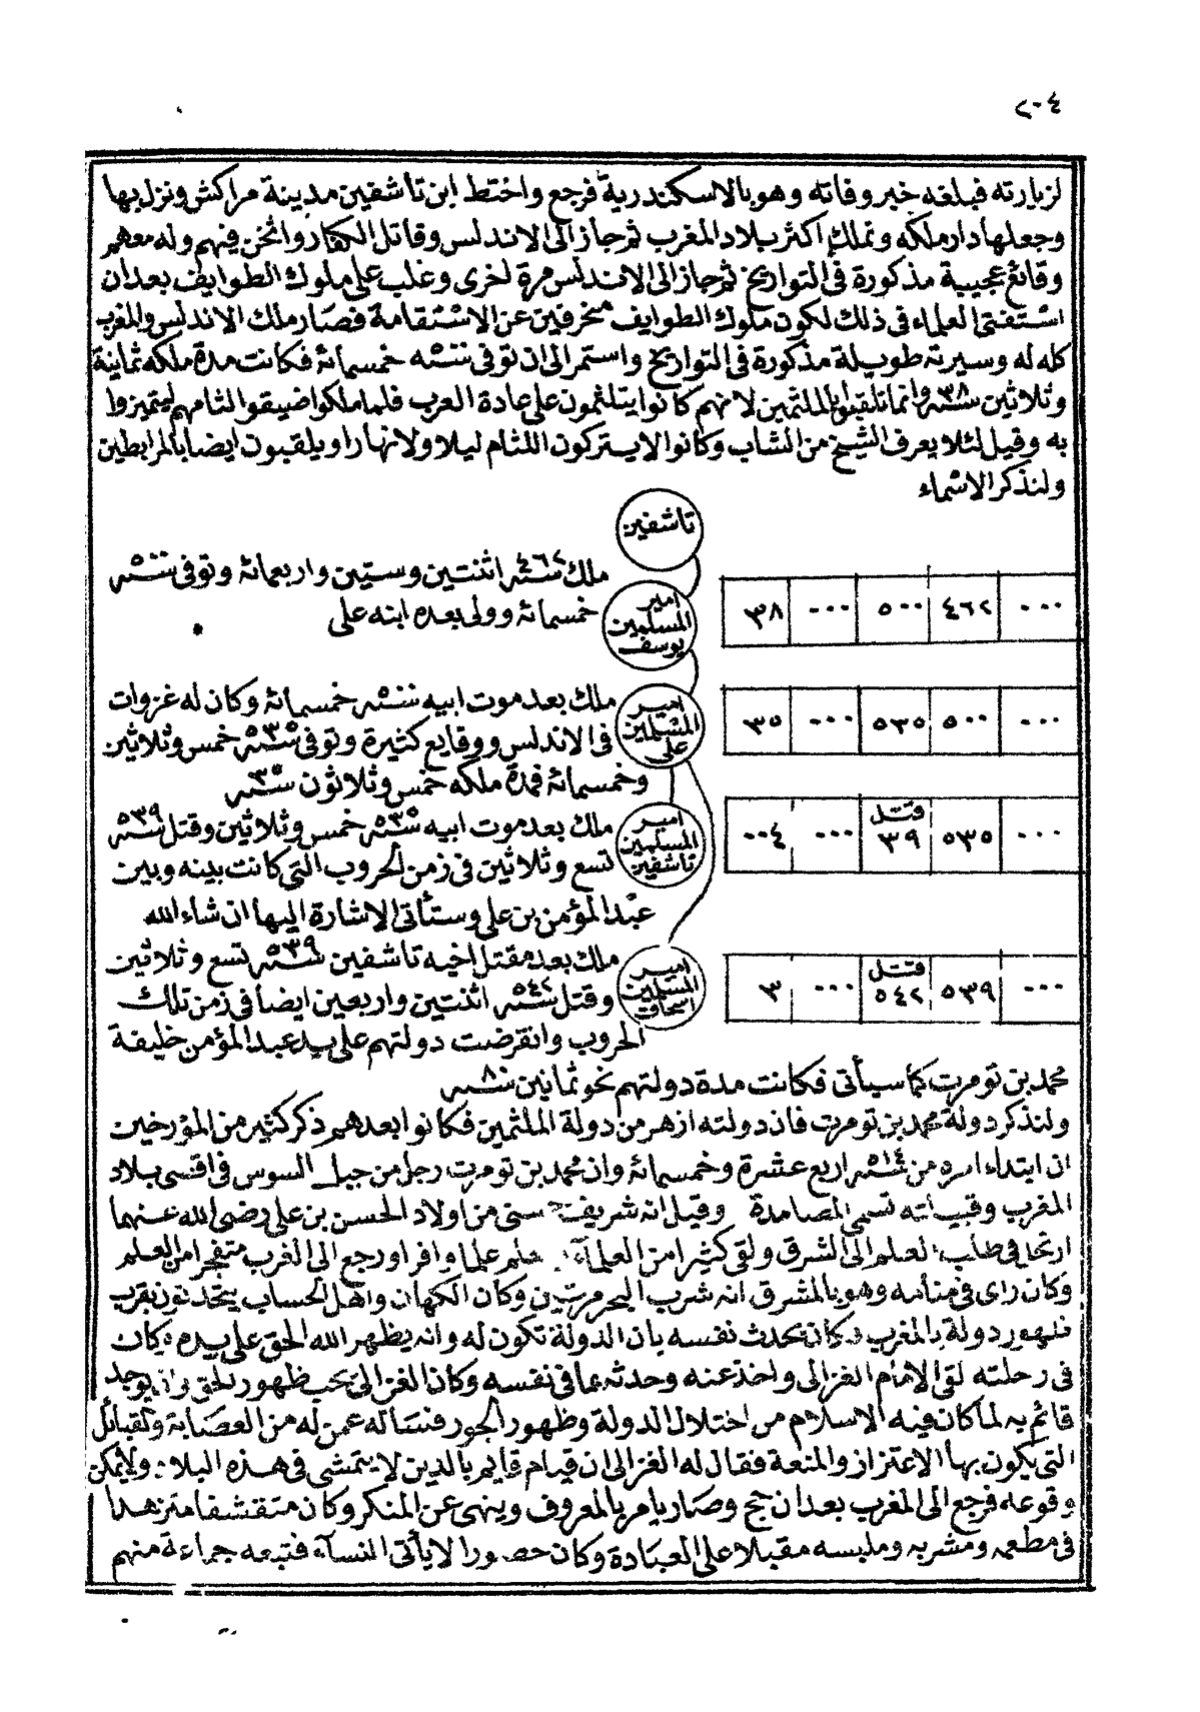 ٢٠٤
لزيارته فبلغه خبر وفاته وهو بالاسكندرية فرجع واختط ابن تاشفين مدينة مراكش ونزل بها
وجعلها دار ملكه وتملك اكثر بلاد المغرب ثم جاز الى الاندلس وقاتل الكفار واثخن فيهم وله معهم
وقائع عجيبة مذكورة فى التواريخ ثم جاز الى الاندلس مرة اخرى وغلب على ملوك الطوايف بعد ان
استفتى العلماء فى ذلك لكون ملوك الطوايف منحرفين عن الاستقامة فصار ملك الاندلس والمغرب
كله له وسيرته طويلة مذكورة فى التواريخ واستمر الى ان توفى سنة ٥٠٠ خمسمائة فكانت مدة ملكه ثمانية
وثلاثين سنة ٣٨ وانما تلقبوا بالملثمين لانهم كانوا يتلثمون على عادة العرب فلما ملكوا ضيقوا لثامهم ليتميزوا
به وقيل لئلا يعرف الشيخ من الشاب وكانوا لا يتركون اللثام ليلا ولا نهارا ويلقبون ايضا بالمرابطين
ولنذكر الاسماء
تاشفين
٠٠٠ ٤٦٢ ٥٠٠ ٠٠٠ ٣٨
امير المسلمين يوسف
ملك سنة ٤٦٢ اثنتين وستين واربعمائة وتوفى سنة ٥٠٠
خمسمائة وولى بعده ابنه على
٠٠٠ ٥٠٠ ٥٣٥ ٠٠٠ ٣٥
امير المسلمين على
ملك بعد موت ابيه سنة ٥٠٠ خمسمائة وكان له غزوات
فى الاندلس ووقايع كثيرة وتوفى سنة ٥٣٥ خمس وثلاثين
وخمسمائة فمدة ملكه خمس وثلاثون سنة ٣٥
٠٠٠ ٥٣٥ قتل ٣٩ ٠٠٠ ٠٠٤
امير المسلمين تاشفين
ملك بعد موت ابيه سنة ٥٣٥ خمس وثلاثين وقتل سنة ٥٣٩
تسع وثلاثين فى زمن الحروب التى كانت بينه وبين
عبد المؤمن بن على وستأتى الاشارة اليها ان شاء الله
٠٠٠ ٥٣٩ قتل ٥٤٢ ٠٠٠ ٣
امير المسلمين اسحاق
ملك بعد مقتل اخيه تاشفين سنة ٥٣٩ تسع وثلاثين
وقتل سنة ٥٤٢ اثنتين واربعين ايضا فى زمن تلك
الحروب وانقرضت دولتهم على يد عبد المؤمن خليفة
محمد بن تومرت كما سيأتى فكانت مدة دولتهم نحو ثمانين سنة ٨٠
ولنذكر دولة محمد بن تومرت فان دولته ازهر من دولة الملثمين فكانوا بعدهم ذكر كثير من المؤرخين
ان ابتداء امره من سنة ٥١٤ اربع عشرة وخمسمائة وان محمد بن تومرت رجل من جبل السوس فى اقصى بلاد
المغرب وقبيلته تسمى المصامدة وقيل انه شريف حسنى من اولاد الحسن بن على رضى الله عنهما
ارتحل فى طلب العلم الى الشرق ولقى كثيرا من العلمآء وعلم علما وافرا ورجع الى المغرب متفجرا من العلم
وكان راى فى منامه وهو بالمشرق انه شرب البحر مرتين وكان الكهان واهل الحساب يتحدثون بقرب
ظهور دولة بالمغرب وكان يحدث نفسه بان الدولة تكون له وانه يظهر الله الحق على يده وكان
فى رحلته لقى الامام الغزالى واخذ عنه وحدثه بما فى نفسه وكان الغزالى يحب ظهور الحق وان يوجد
قائم به لما كان فيه الاسلام من اختلال الدولة وظهور الجور فسأله عمن له من العصابة والقبائل
التى يكون بها الاعتزاز والمنعة فقال له الغزالى ان قيام قايم بالدين لا يتمشى فى هذه البلاد ولا يمكن
وقوعه فرجع الى المغرب بعد ان حج وصار يامر بالمعروف وينهى عن المنكر وكان متقشفا متزهدا
فى مطعمه ومشربه وملبسه مقبلا على العبادة وكان حصورا لا يأتى النسآء فتبعه جماعة منهم